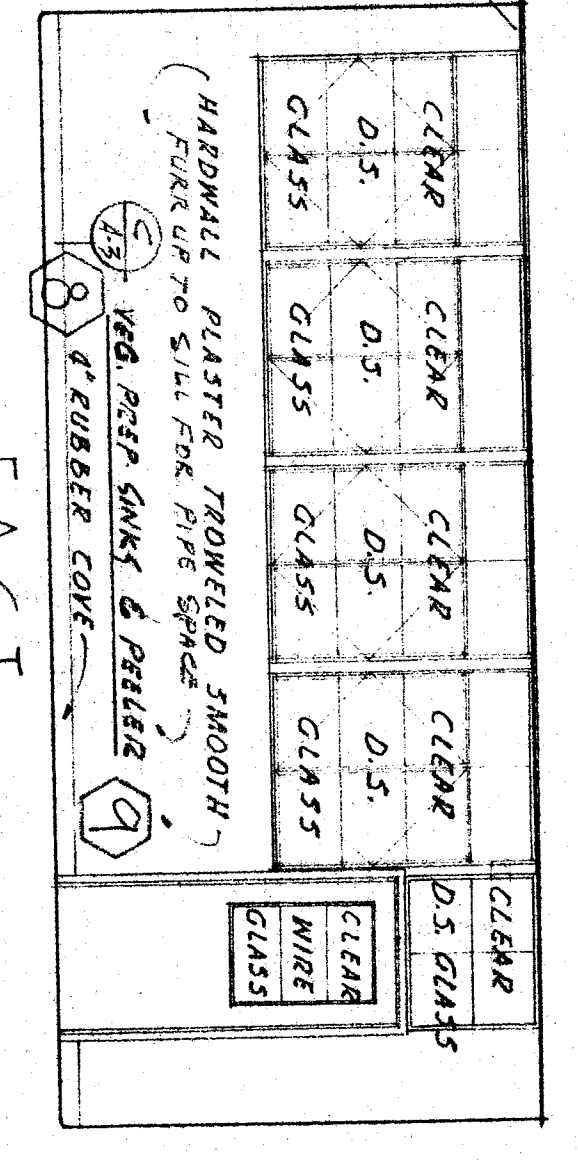 CLEAR
D.S.
GLASS
CLEAR
D.S.
GLASS
CLEAR
D.S.
GLASS
CLEAR
D.S.
GLASS
CLEAR
D.S. GLASS
CLEAR
WIRE
GLASS
HARDWALL PLASTER TROWELED SMOOTH
FURR UP TO SILL FOR PIPE SPACE
C
A-3
VEG. PREP. SINKS & PEELER
9
8
4" RUBBER COVE